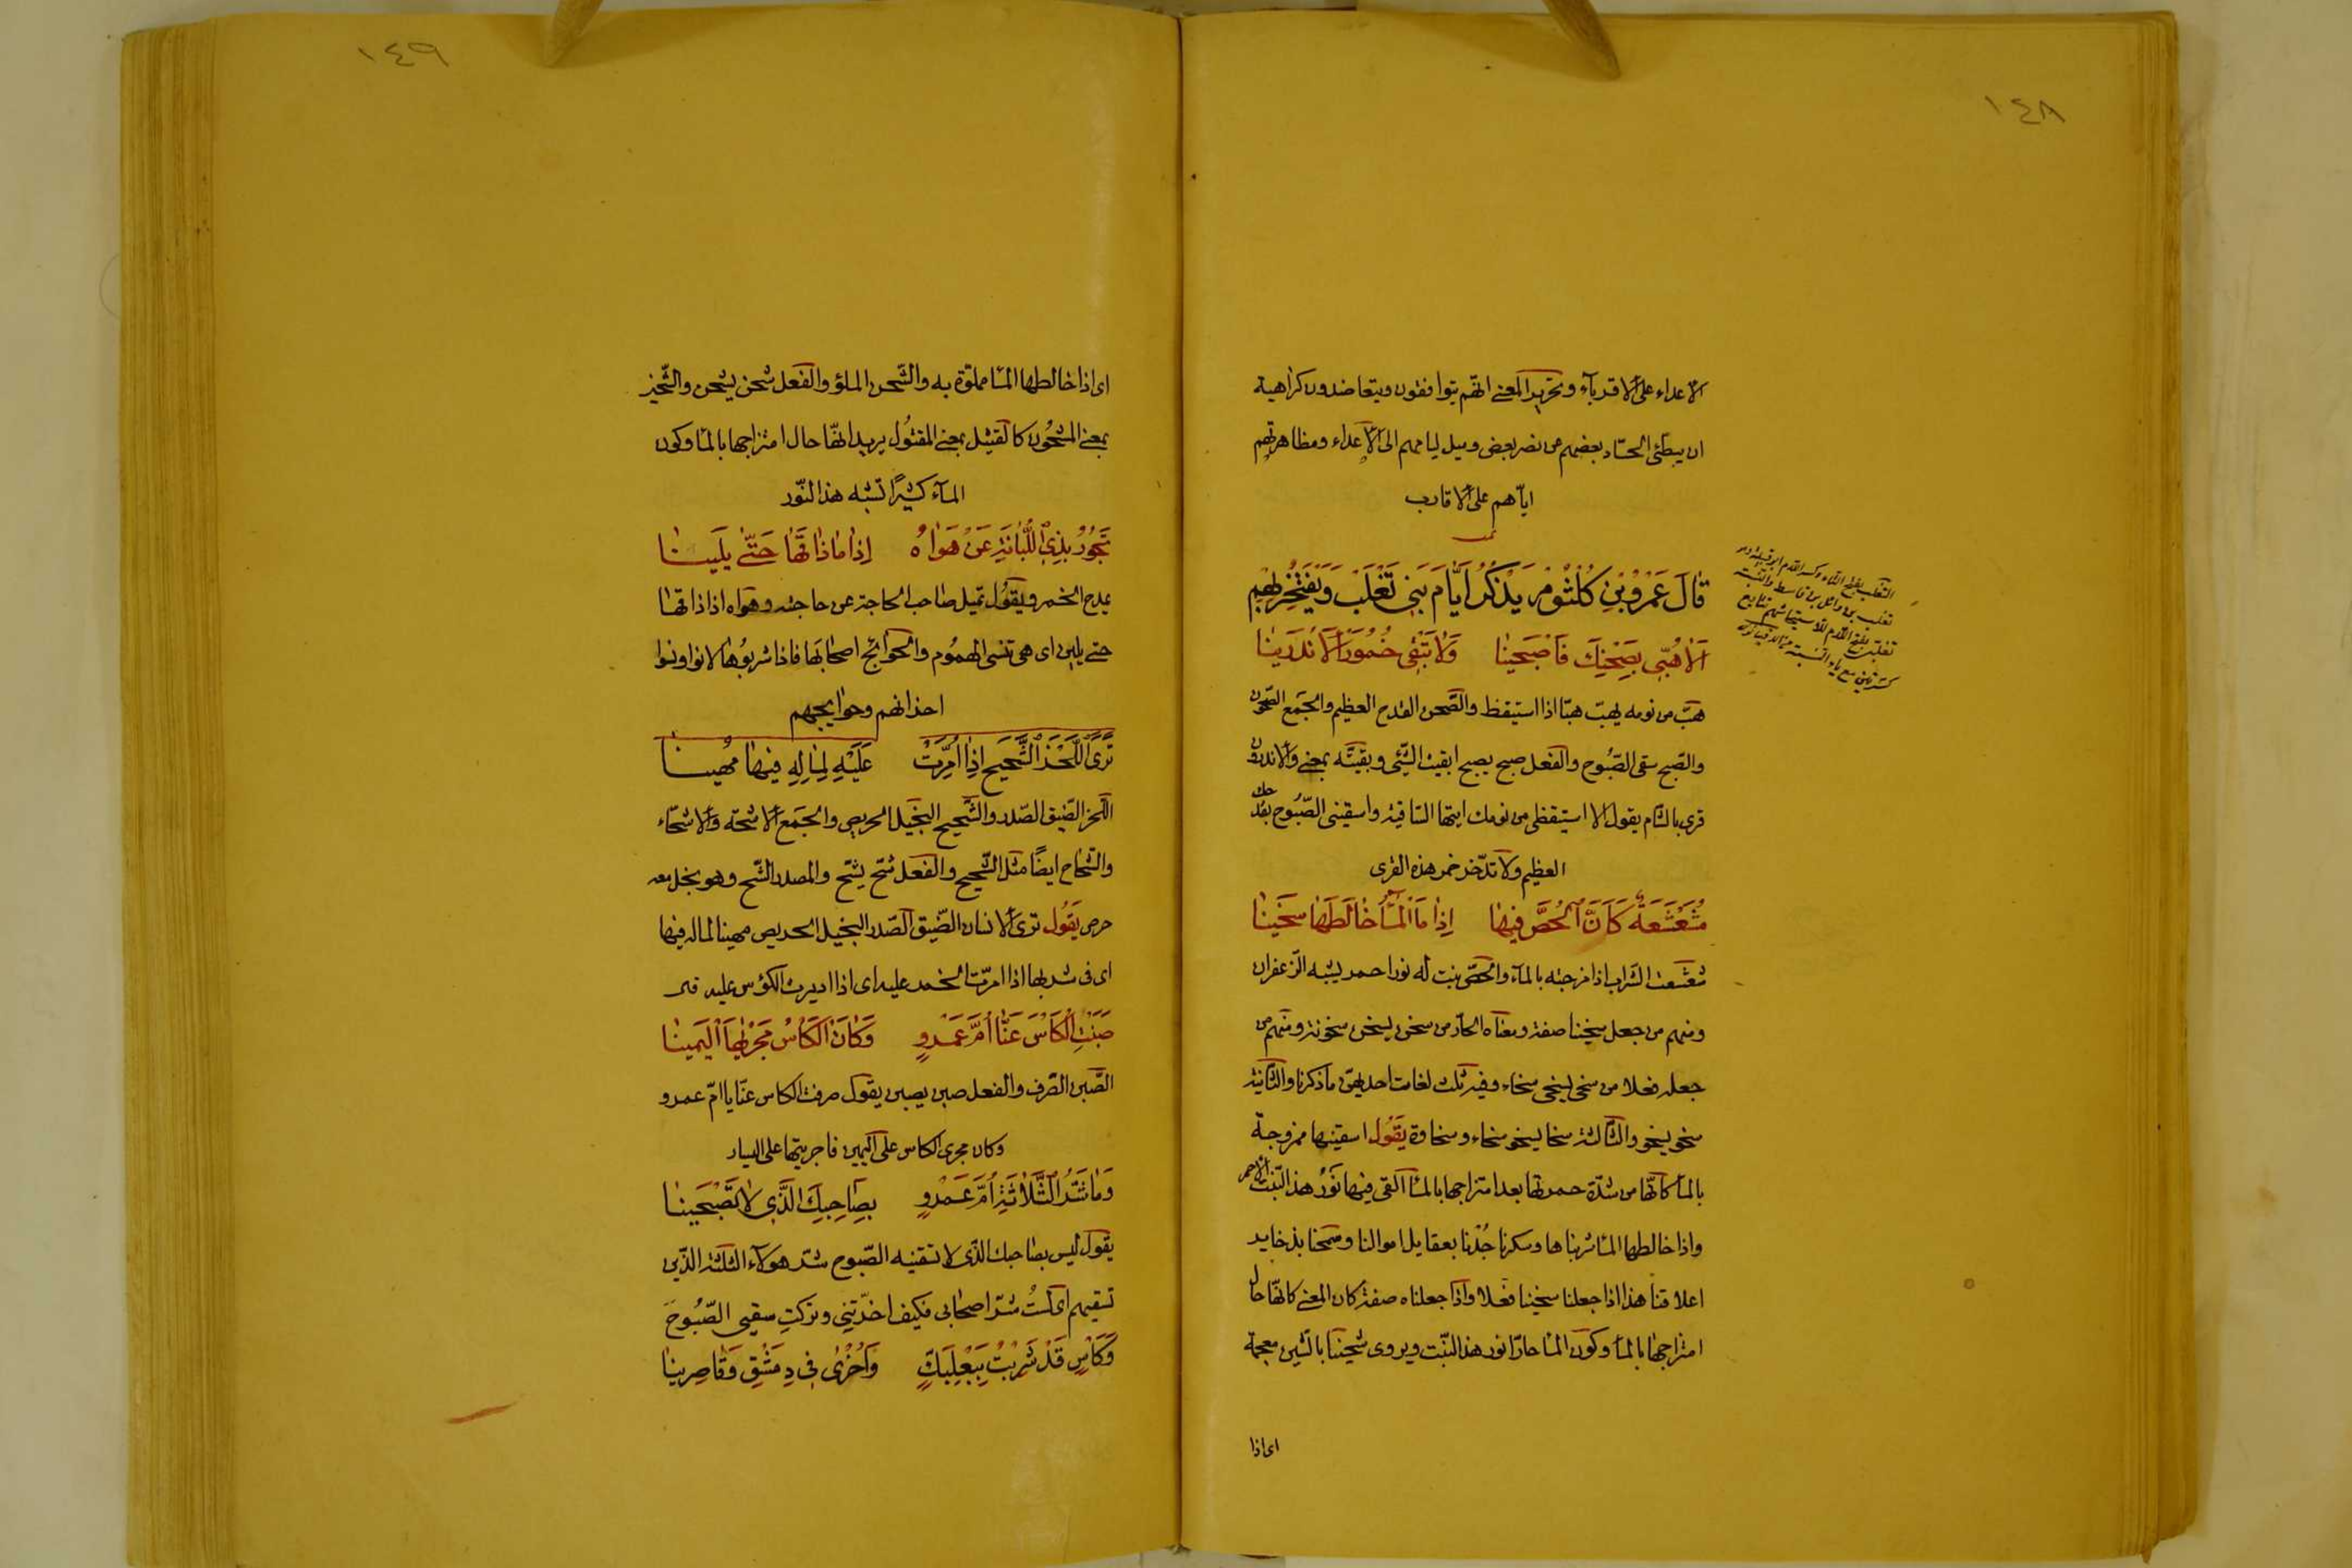 ١٤٨
الاعداء على الاقرباء وتحرير المعنى انهم يتوافقون ويتعاضدون كراهية
ان يبطئ الحساد بعضهم من نصر بعض وميل ليامهم الى الاعداء ومظاهرتهم
اياهم على الاقارب
قال عَمْرُو بْنِ كُلْثُوْمْ يَذْكُرُ اَيَّامَ بَنِى تَغْلَبْ وَيَفْتَخِرُ بِهِمْ
التغلب بفتح التاء وكسر اللام ابو قبيلة وهو
تغلب بن وائل بن قاسط والنسبة
تغلبى بفتح اللام للاستيحاشهم لتتابع
كسرتين مع ياء النسبة
اَلَا هُبِّى بِصَحْنِكِ فَاصْبَحِيْنَا وَلَا تُبْقِى خُمُورَ الْاَنْدَرِيْنَا
هبّ من نومه يهبّ هبّا اذا استيقظ والصّحن القدح العظيم والجمع الصّحون
والصّبح سقى الصّبُوح والفعل صبح يصبح ابقيت الشّئى وبقيته بمعنى والاندرون
قرى بالشام يقول الا استيقظى من نومك ايتها الساقية واسقينى الصّبُوح بقدحك
العظيم ولا تدّخر خمر هذه القرى
مُشَعْشَعَةً كَاَنَّ الْحُصَّ فِيْهَا اِذَا مَا الْمَاءُ خَالَطَهَا سَخِيْنَا
شعشعت الشراب اذا مزجته بالماء والحصّ نبت له نور احمر يشبه الزعفران
ومنهم من جعل سخينا صفة ومعناه الحارّ من سخن يسخن سخونة ومنهم من
جعله فعلا من سخى يسخى سخاء وفيه ثلث لغات احديهنّ ما ذكرنا والثانية
سخو يسخو والثالثة سخا يسخو سخاء وسخاوة يَقُوْل اسقينيها ممزوجة
بالماء كانّها من شدّة حمرتها بعد امتزاجها بالماء القى فيها نَوْرُ هذا النّبت الاحمر
واذا خالطها الماء شربناها وسكرنا جُدْنا بعقايل اموالنا وسمحنا بذخاير
اعلاقنا هذا اذا جعلنا سخينا فعلا واذا جعلناه صفة كان المعنى كانّها حال
امتزاجها بالماء وكون الماء حارّا نور هذا النّبت ويروى شحينا بالشّين معجمة
اى اذا
١٤٩
اى اذا خالطها الماء مملوّة به والشّحن الملؤ والفعل شحن يشحن والشّحين
بمعنى المشحُون كالقتيل بمعنى المقتُول يريد انّها حال امتزاجها بالماء وكون
الماء كثيرًا تشبه هذا النّور
تَجُوْرُ بِذِى اللُّبَانَةِ عَنْ هَوَاهُ اِذَا مَا ذَاقَهَا حَتّٰى يَلِيْنَا
يمدح الخمر ويقول تميل صاحب الحاجة عن حاجته وهواه اذا ذاقها
حتى يلين اى هى تنسى الهموم والحوائج اصحابها فاذا شربُوها لانوا ونسوا
احزانهم وحوايجهم
تَرَى اللَّحِزَ الشَّحِيْحَ اِذَا اُمِرَّتْ عَلَيْهِ لِمَالِهِ فِيْهَا مُهِيْنَا
اللحز الضّيق الصّدر والشّحيح البخيل الحريص والجمع الاشحّة والاشحّاء
والشّحاح ايضًا مثل الشّحيح والفعل شحّ يشحّ والمصدر الشّح وهو بخل معه
حرص يَقُول ترى الانسان الضّيق الصّدر البخيل الحريص مهينا لماله فيها
اى فى شربها اذا امرّت الخمر عليه اى اذا اديرت الكؤس عليه
صَبَنْتِ الْكَأسَ عَنَّا اُمَّ عَمْرٍو وَكَانَ الْكَأسُ مَجْرٰيهَا الْيَمِيْنَا
الصّبن الصّرف والفعل صبن يصبن يقول صرفت الكاس عنّا يا امّ عمرو
وكان مجرى الكاس على اليمين فاجريتها على اليسار
وَمَا شَرُّ الثَّلَاثَةِ اُمَّ عَمْرٍو بِصَاحِبِكَ الَّذِى لَا تَصْبَحِيْنَا
يقول ليس بصاحبك الذى لا تسقينه الصّبوح شر هؤلاء الثلثة الذين
تسقيهم اى لستُ شرّ اصحابى فكيف اخّرتِنى وتركتِ سقيى الصّبُوحَ
وَكَأسٍ قَدْ شَرِبْتُ بِبَعْلَبَكٍّ وَاُخْرٰى فِى دِمَشْقِ وَقَاصِرِيْنَا